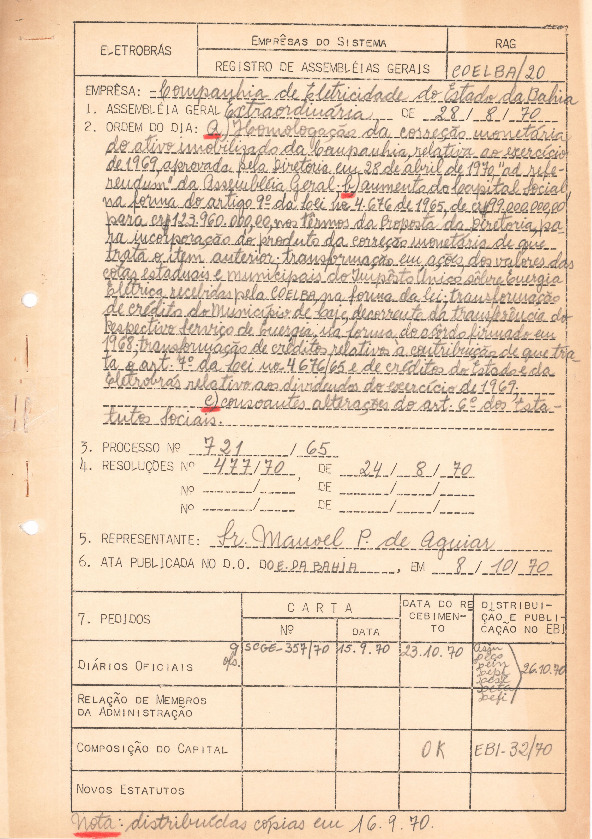 ELETROBRÁS
EMPRÊSAS DO SISTEMA
RAG
REGISTRO DE ASSEMBLÉIAS GERAIS
COELBA/20
EMPRÊSA: Companhia de Eletricidade do Estado da Bahia
1. ASSEMBLÉIA GERAL Extraordinária DE 28/8/70
2. ORDEM DO DIA: a) Homologação da correção monetária
do ativo imobilizado da Companhia, relativa ao exercício
de 1969, aprovada pela Diretoria em 28 de abril de 1970 "ad refe-
rendum" da Assembléia Geral. b) aumento do Capital Social,
na forma do artigo 9º da Lei nº 4.676 de 1965, de cr$99.000.000,00
para cr$123.960.000,00, nos têrmos da Proposta da Diretoria, pa-
ra incorporação do produto da correção monetária de que
trata o item anterior; transformação em ações dos valores das
cotas estaduais e municipais do Impôsto Único sôbre Energia
Elétrica recebidas pela COELBA, na forma da lei; transformação
de crédito do Município de decorrente da transferência do
respectivo Serviço de Energia, na forma do acôrdo firmado em
1968; transformação de créditos relativos a contribuição de que tra-
ta o art. 7º da Lei nº 4676/65 e de créditos do Estado e da
Eletrobrás relativo aos dividendos do exercício de 1969;
c) consoantes alterações do art. 6º dos Esta-
tutos Sociais.
3. PROCESSO Nº 721 / 65
4. RESOLUÇÕES Nº 477/70, DE 24/ 8 / 70
Nº / DE / /
Nº / DE / /
5. REPRESENTANTE: Sr. Manoel P. de Aguiar
6. ATA PUBLICADA NO D.O. DO E. DA BAHIA, EM 8 / 10/ 70
7. PEDIDOS
CARTA
Nº
DATA
DATA DO RE
CEBIMEN-
TO
DISTRIBUI-
ÇÃO E PUBLI-
CAÇÃO NO EBI
DIÁRIOS OFICIAIS
SCGE-357/70
15.9.70
23.10.70
26.10.70
RELAÇÃO DE MEMBROS
DA ADMINISTRAÇÃO
COMPOSIÇÃO DO CAPITAL
OK
EBI-32/70
NOVOS ESTATUTOS
Nota: distribuídas cópias em 16.9.70.